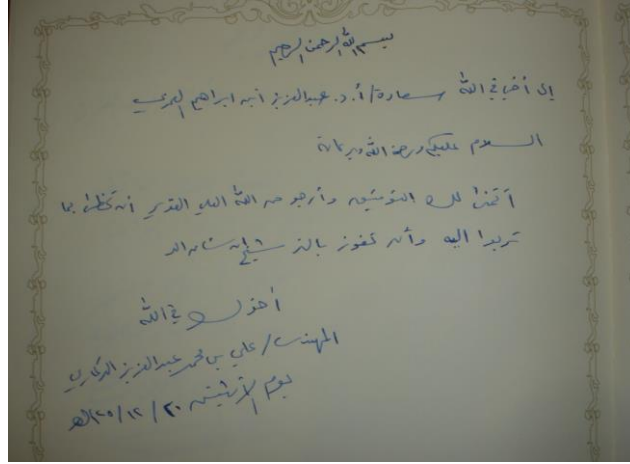 بسم الله الرحمن الرحيم
إلى أخي في الله سعادة / أ.د. عبدالعزيز ابن ابراهيم العمري
السلام عليكم ورحمة الله وبركاته
أتمنا لك التوفيق وأرجو من الله العلي القدير أن تحظى بما
تربوا اليه وأن تفوز بالترشيح إن شاء الله
أخوك في الله
المهندس / علي بن محمد عبدالعزيز
يوم الاثنين ٢٠ / ١٢ / ١٤٢٥هـ